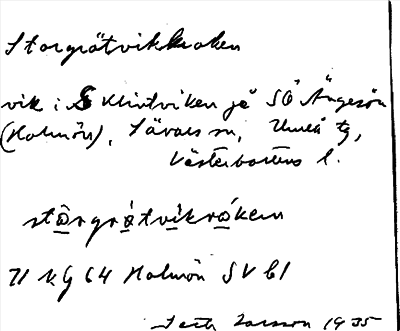 Storgråtvikkroken
vik i S Klintviken på SÖ Ängesön
(Holmön), Sävars sn, Umeå tg,
Västerbottens l.
stȯrgrȧtvikrȯken
71 KG 64 Holmön SV b1
Larsson 1935